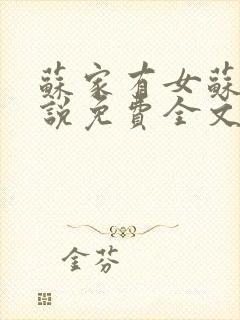 蘇家有女蘇
說免費全文
金芬